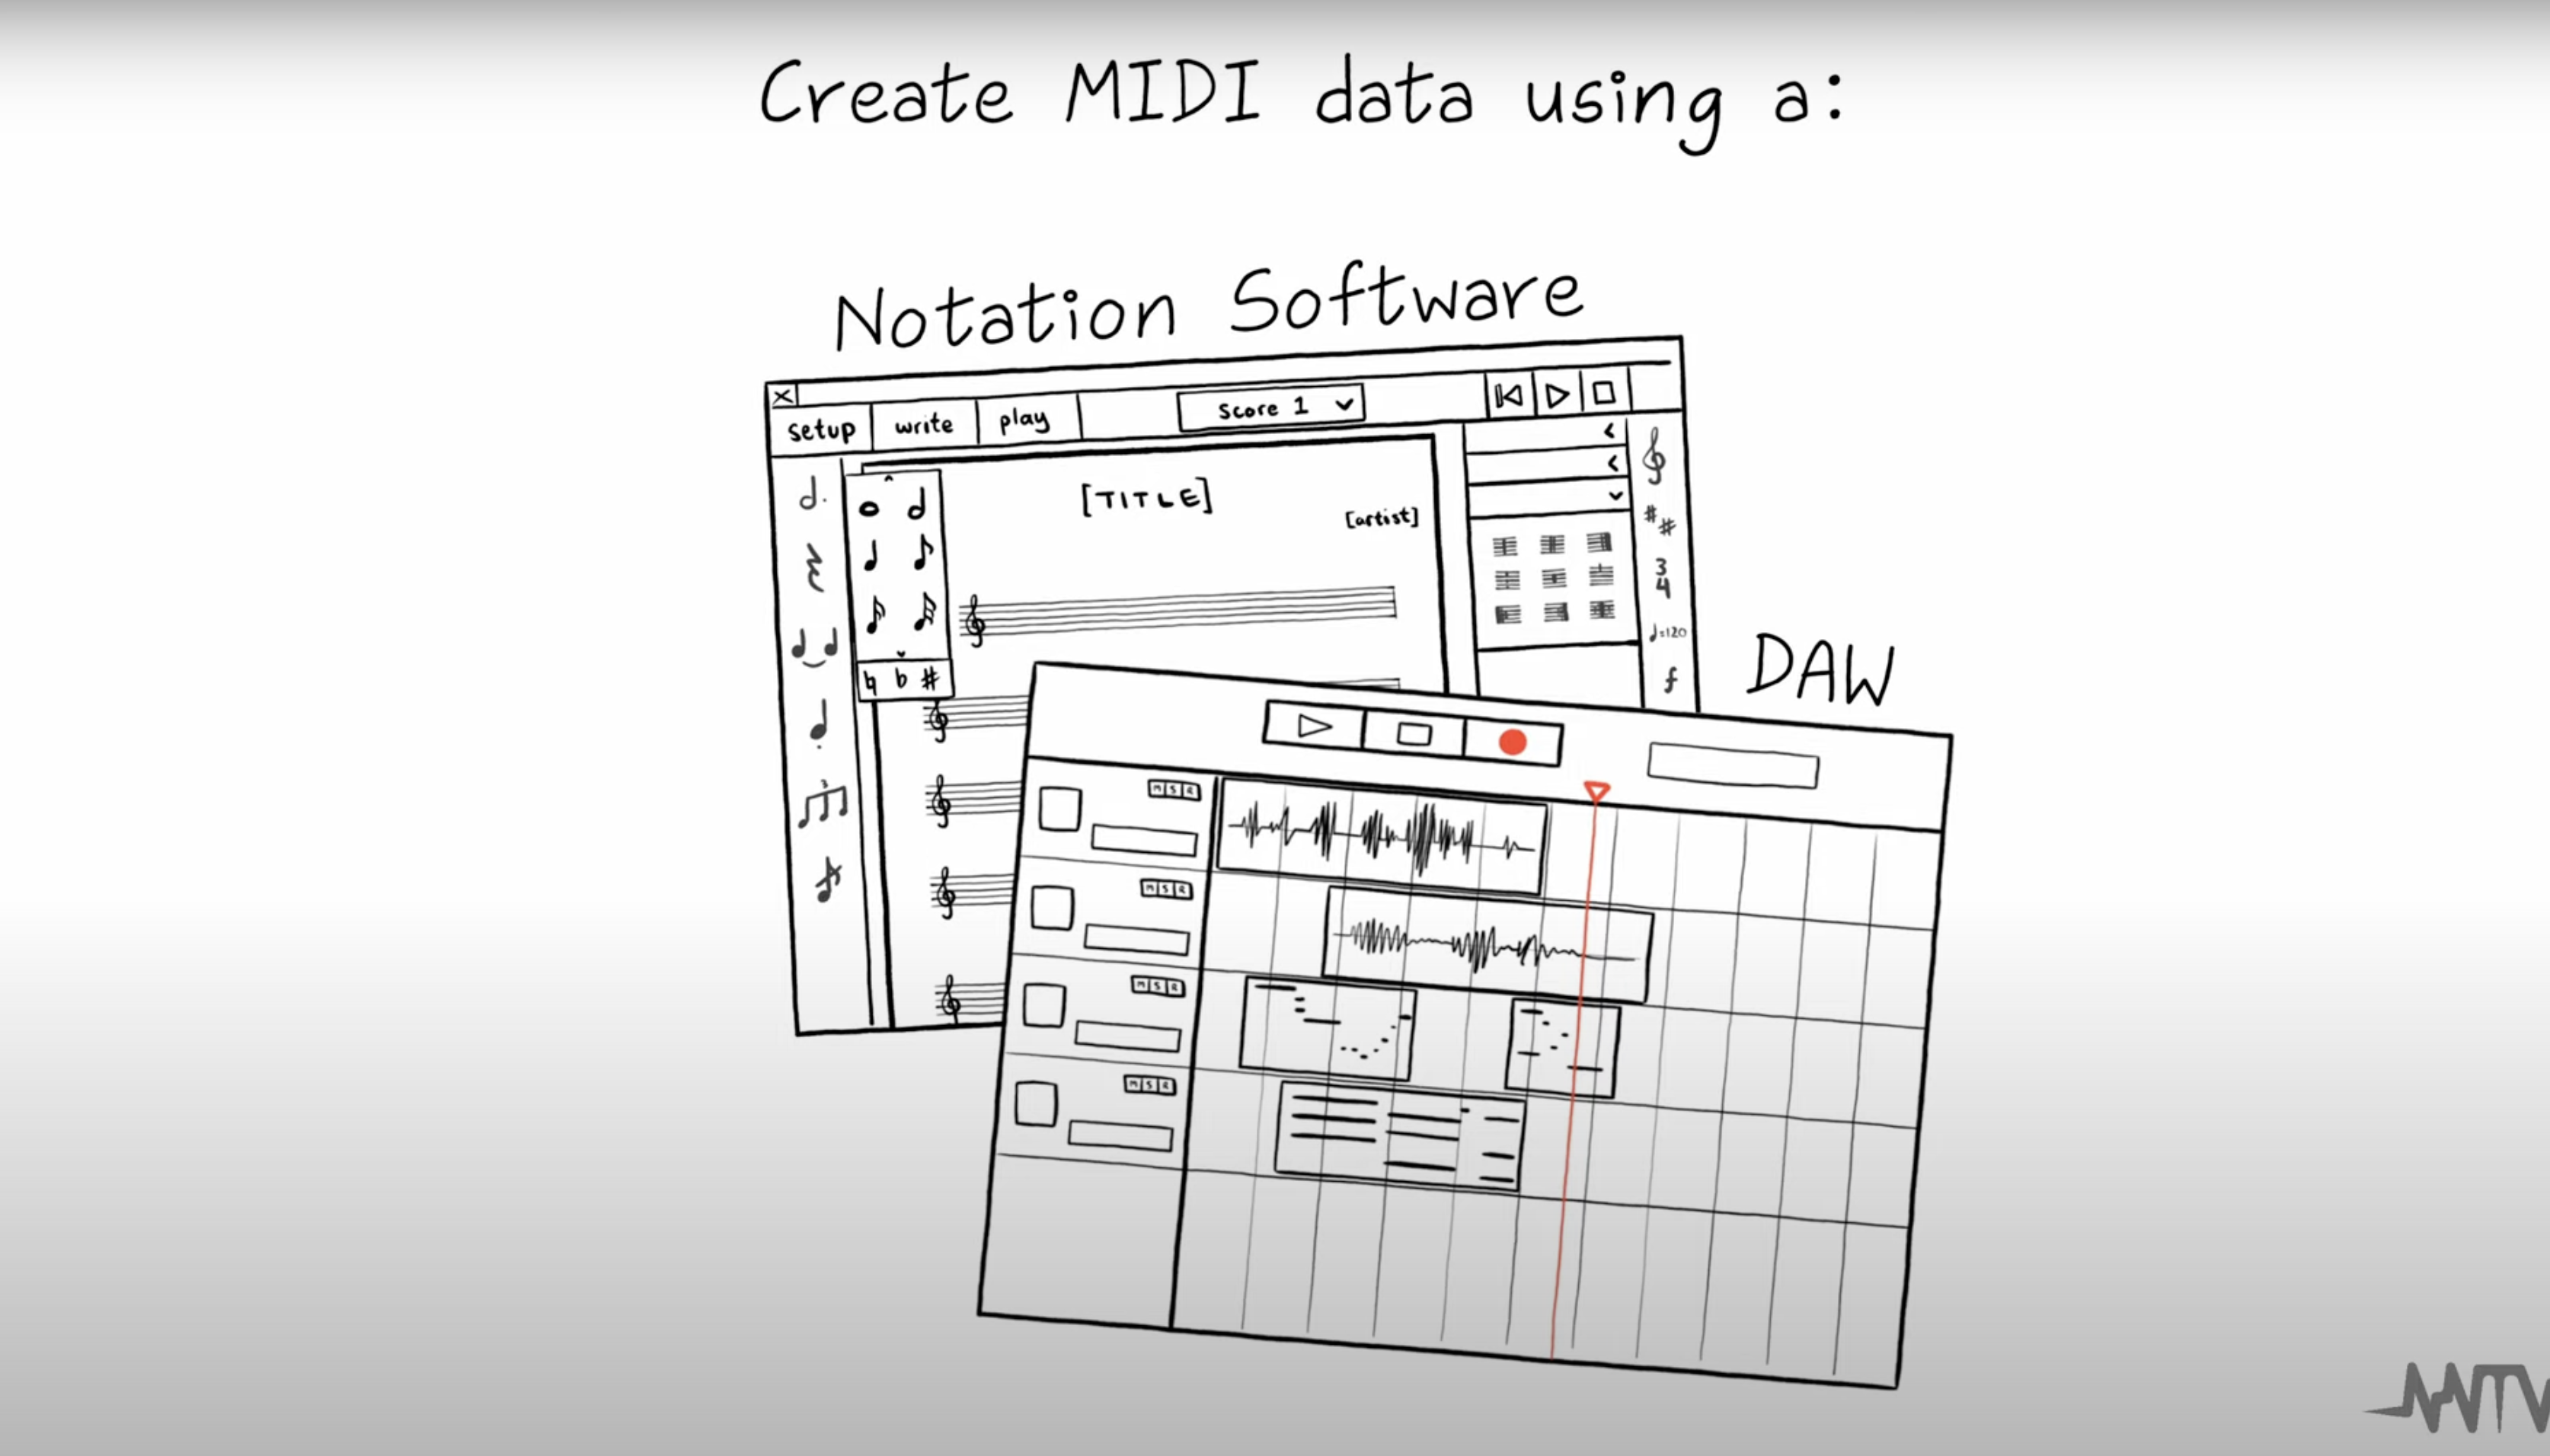 Create MIDI data using a:
Notation Software
setup write play Score 1
[TITLE]
[artist]
3
4
=120
f
DAW
M S R
M S R
M S R
M S R